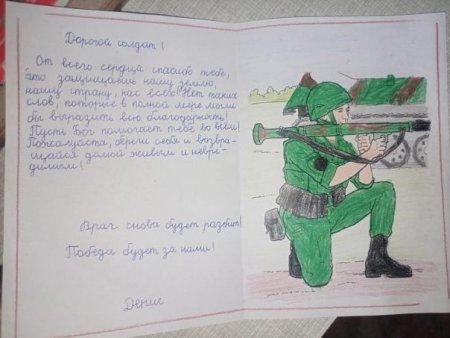 Дорогой солдат!
От всего сердца спасибо тебе,
что защищаешь нашу землю,
нашу страну, нас всех! Нет таких
слов, которые в полной мере могли
бы выразить всю благодарность!
Пусть Бог помогает тебе во всём!
Пожалуйста, береги себя и возвра-
щайся домой живым и невре-
димым!
Враг снова будет разбит!
Победа будет за нами!
Денис